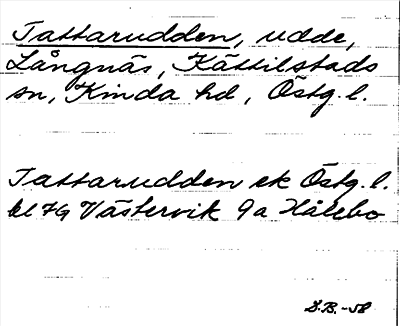 Tattarudden, udde,
Långnäs, Kättilstads
sn, Kinda hd, Östg. l.
Tattarudden ek Östg. l.
bl 74 Västervik 9a Hålebo
S.B. -58